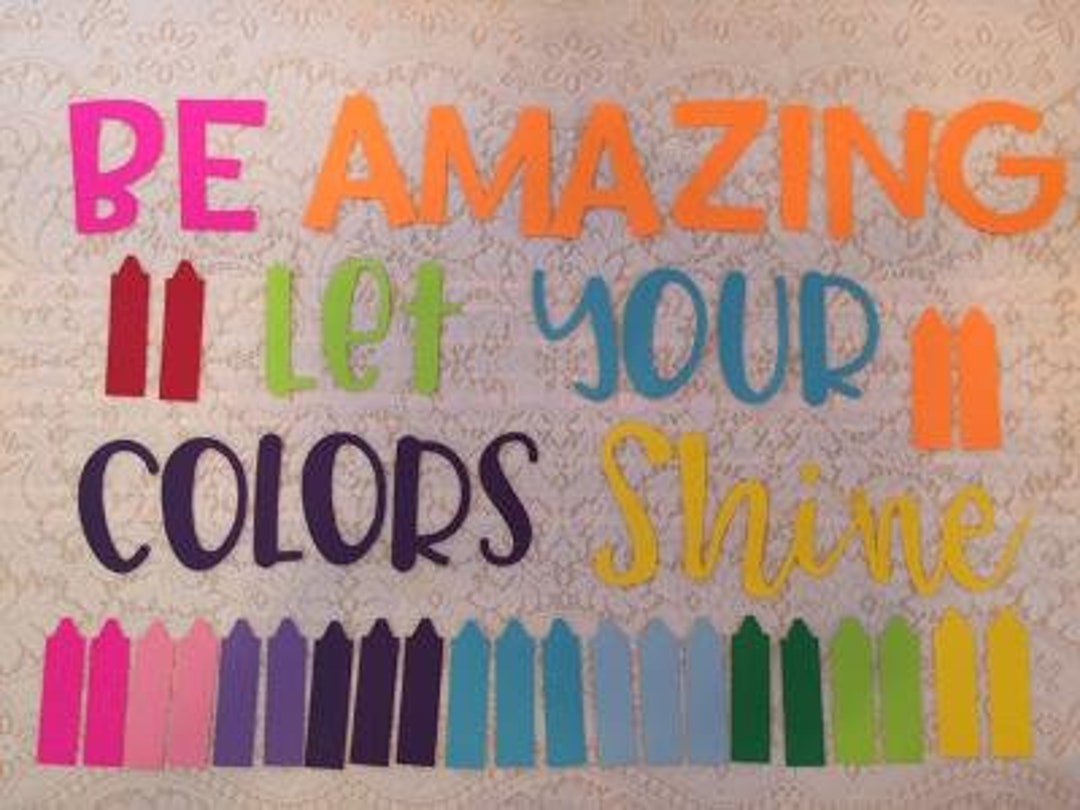 BE AMAZING
Let YOUR
COLORS Shine